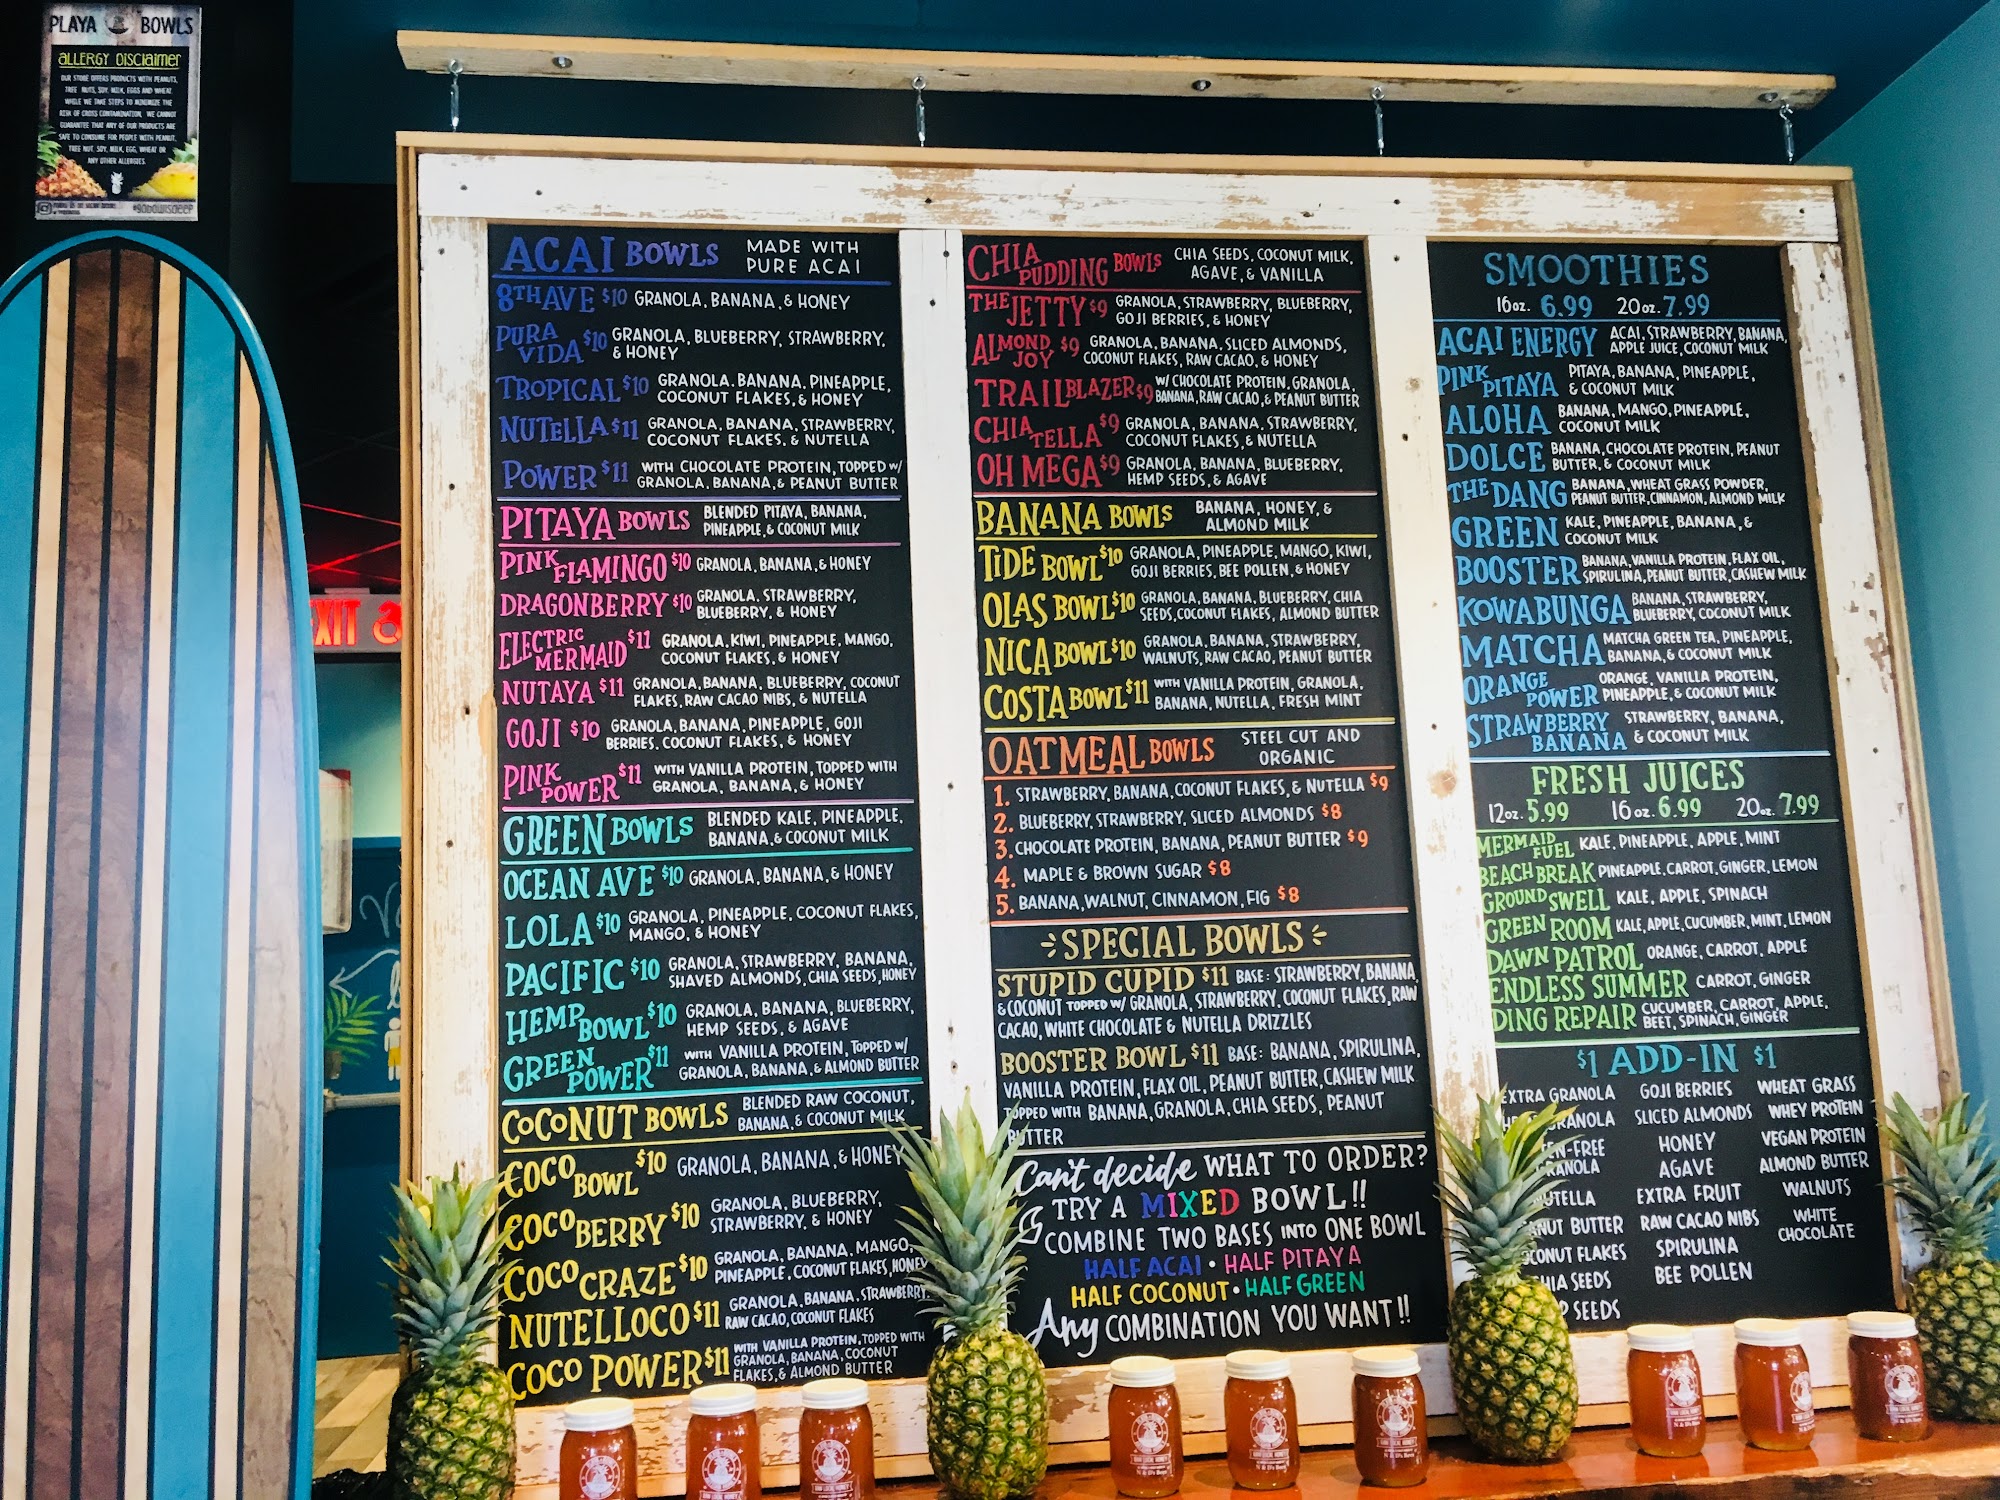 PLAYA BOWLS
ALLERGY DISCLAIMER
OUR STORE OFFERS PRODUCTS WITH PEANUTS,
TREE NUTS, SOY, MILK, EGGS AND WHEAT.
WHILE WE TAKE STEPS TO MINIMIZE THE
RISK OF CROSS CONTAMINATION, WE CANNOT
GUARANTEE THAT ANY OF OUR PRODUCTS ARE
SAFE TO CONSUME FOR PEOPLE WITH PEANUT,
TREE NUT, SOY, MILK, EGG, WHEAT OR
ANY OTHER ALLERGIES.
#GOBOWLSDEEP
EXIT
ACAI BOWLS MADE WITH
PURE ACAI
8TH AVE $10 GRANOLA, BANANA, & HONEY
PURA VIDA $10 GRANOLA, BLUEBERRY, STRAWBERRY,
& HONEY
TROPICAL $10 GRANOLA, BANANA, PINEAPPLE,
COCONUT FLAKES, & HONEY
NUTELLA $11 GRANOLA, BANANA, STRAWBERRY,
COCONUT FLAKES, & NUTELLA
POWER $11 WITH CHOCOLATE PROTEIN, TOPPED W/
GRANOLA, BANANA, & PEANUT BUTTER
PITAYA BOWLS BLENDED PITAYA, BANANA,
PINEAPPLE, & COCONUT MILK
PINK FLAMINGO $10 GRANOLA, BANANA, & HONEY
DRAGONBERRY $10 GRANOLA, STRAWBERRY,
BLUEBERRY, & HONEY
ELECTRIC MERMAID $11 GRANOLA, KIWI, PINEAPPLE, MANGO,
COCONUT FLAKES, & HONEY
NUTAYA $11 GRANOLA, BANANA, BLUEBERRY, COCONUT
FLAKES, RAW CACAO NIBS, & NUTELLA
GOJI $10 GRANOLA, BANANA, PINEAPPLE, GOJI
BERRIES, COCONUT FLAKES, & HONEY
PINK POWER $11 WITH VANILLA PROTEIN, TOPPED WITH
GRANOLA, BANANA, & HONEY
GREEN BOWLS BLENDED KALE, PINEAPPLE,
BANANA, & COCONUT MILK
OCEAN AVE $10 GRANOLA, BANANA, & HONEY
LOLA $10 GRANOLA, PINEAPPLE, COCONUT FLAKES,
MANGO, & HONEY
PACIFIC $10 GRANOLA, STRAWBERRY, BANANA,
SHAVED ALMONDS, CHIA SEEDS, HONEY
HEMP BOWL $10 GRANOLA, BANANA, BLUEBERRY,
HEMP SEEDS, & AGAVE
GREEN POWER $11 WITH VANILLA PROTEIN, TOPPED W/
GRANOLA, BANANA, & ALMOND BUTTER
COCONUT BOWLS BLENDED RAW COCONUT,
BANANA, & COCONUT MILK
COCO BOWL $10 GRANOLA, BANANA, & HONEY
COCO BERRY $10 GRANOLA, BLUEBERRY,
STRAWBERRY, & HONEY
COCO CRAZE $10 GRANOLA, BANANA, MANGO,
PINEAPPLE, COCONUT FLAKES, HONEY
NUTELLOCO $11 GRANOLA, BANANA, STRAWBERRY,
RAW CACAO, COCONUT FLAKES
COCO POWER $11 WITH VANILLA PROTEIN, TOPPED WITH
GRANOLA, BANANA, COCONUT
FLAKES, & ALMOND BUTTER
CHIA PUDDING BOWLS CHIA SEEDS, COCONUT MILK,
AGAVE, & VANILLA
THE JETTY $9 GRANOLA, STRAWBERRY, BLUEBERRY,
GOJI BERRIES, & HONEY
ALMOND JOY $9 GRANOLA, BANANA, SLICED ALMONDS,
COCONUT FLAKES, RAW CACAO, & HONEY
TRAILBLAZER $9 W/ CHOCOLATE PROTEIN, GRANOLA,
BANANA, RAW CACAO, & PEANUT BUTTER
CHIA TELLA $9 GRANOLA, BANANA, STRAWBERRY,
COCONUT FLAKES, & NUTELLA
OH MEGA $9 GRANOLA, BANANA, BLUEBERRY,
HEMP SEEDS, & AGAVE
BANANA BOWLS BANANA, HONEY, &
ALMOND MILK
TIDE BOWL $10 GRANOLA, PINEAPPLE, MANGO, KIWI,
GOJI BERRIES, BEE POLLEN, & HONEY
OLAS BOWL $10 GRANOLA, BANANA, BLUEBERRY, CHIA
SEEDS, COCONUT FLAKES, ALMOND BUTTER
NICA BOWL $10 GRANOLA, BANANA, STRAWBERRY,
WALNUTS, RAW CACAO, PEANUT BUTTER
COSTA BOWL $11 WITH VANILLA PROTEIN, GRANOLA,
BANANA, NUTELLA, FRESH MINT
OATMEAL BOWLS STEEL CUT AND
ORGANIC
1. STRAWBERRY, BANANA, COCONUT FLAKES, & NUTELLA $9
2. BLUEBERRY, STRAWBERRY, SLICED ALMONDS $8
3. CHOCOLATE PROTEIN, BANANA, PEANUT BUTTER $9
4. MAPLE & BROWN SUGAR $8
5. BANANA, WALNUT, CINNAMON, FIG $8
SPECIAL BOWLS
STUPID CUPID $11 BASE: STRAWBERRY, BANANA,
& COCONUT TOPPED W/ GRANOLA, STRAWBERRY, COCONUT FLAKES, RAW
CACAO, WHITE CHOCOLATE & NUTELLA DRIZZLES
BOOSTER BOWL $11 BASE: BANANA, SPIRULINA,
VANILLA PROTEIN, FLAX OIL, PEANUT BUTTER, CASHEW MILK
TOPPED WITH BANANA, GRANOLA, CHIA SEEDS, PEANUT
BUTTER
Can't decide WHAT TO ORDER?
TRY A MIXED BOWL!!
COMBINE TWO BASES INTO ONE BOWL
HALF ACAI • HALF PITAYA
HALF COCONUT • HALF GREEN
Any COMBINATION YOU WANT!!
SMOOTHIES
16oz. 6.99 20oz. 7.99
ACAI ENERGY ACAI, STRAWBERRY, BANANA,
APPLE JUICE, COCONUT MILK
PINK PITAYA PITAYA, BANANA, PINEAPPLE,
& COCONUT MILK
ALOHA BANANA, MANGO, PINEAPPLE,
COCONUT MILK
DOLCE BANANA, CHOCOLATE PROTEIN, PEANUT
BUTTER, & COCONUT MILK
THE DANG BANANA, WHEAT GRASS POWDER,
PEANUT BUTTER, CINNAMON, ALMOND MILK
GREEN KALE, PINEAPPLE, BANANA, &
COCONUT MILK
BOOSTER BANANA, VANILLA PROTEIN, FLAX OIL,
SPIRULINA, PEANUT BUTTER, CASHEW MILK
KOWABUNGA BANANA, STRAWBERRY,
BLUEBERRY, COCONUT MILK
MATCHA MATCHA GREEN TEA, PINEAPPLE,
BANANA, & COCONUT MILK
ORANGE POWER ORANGE, VANILLA PROTEIN,
PINEAPPLE, & COCONUT MILK
STRAWBERRY BANANA STRAWBERRY, BANANA,
& COCONUT MILK
FRESH JUICES
12oz. 5.99 16oz. 6.99 20oz. 7.99
MERMAID FUEL KALE, PINEAPPLE, APPLE, MINT
BEACH BREAK PINEAPPLE, CARROT, GINGER, LEMON
GROUND SWELL KALE, APPLE, SPINACH
GREEN ROOM KALE, APPLE, CUCUMBER, MINT, LEMON
DAWN PATROL ORANGE, CARROT, APPLE
ENDLESS SUMMER CARROT, GINGER
DING REPAIR CUCUMBER, CARROT, APPLE,
BEET, SPINACH, GINGER
$1 ADD-IN $1
EXTRA GRANOLA
GRANOLA
EN-FREE
GRANOLA
NUTELLA
PEANUT BUTTER
COCONUT FLAKES
CHIA SEEDS
SEEDS
GOJI BERRIES
SLICED ALMONDS
HONEY
AGAVE
EXTRA FRUIT
RAW CACAO NIBS
SPIRULINA
BEE POLLEN
WHEAT GRASS
WHEY PROTEIN
VEGAN PROTEIN
ALMOND BUTTER
WALNUTS
WHITE
CHOCOLATE